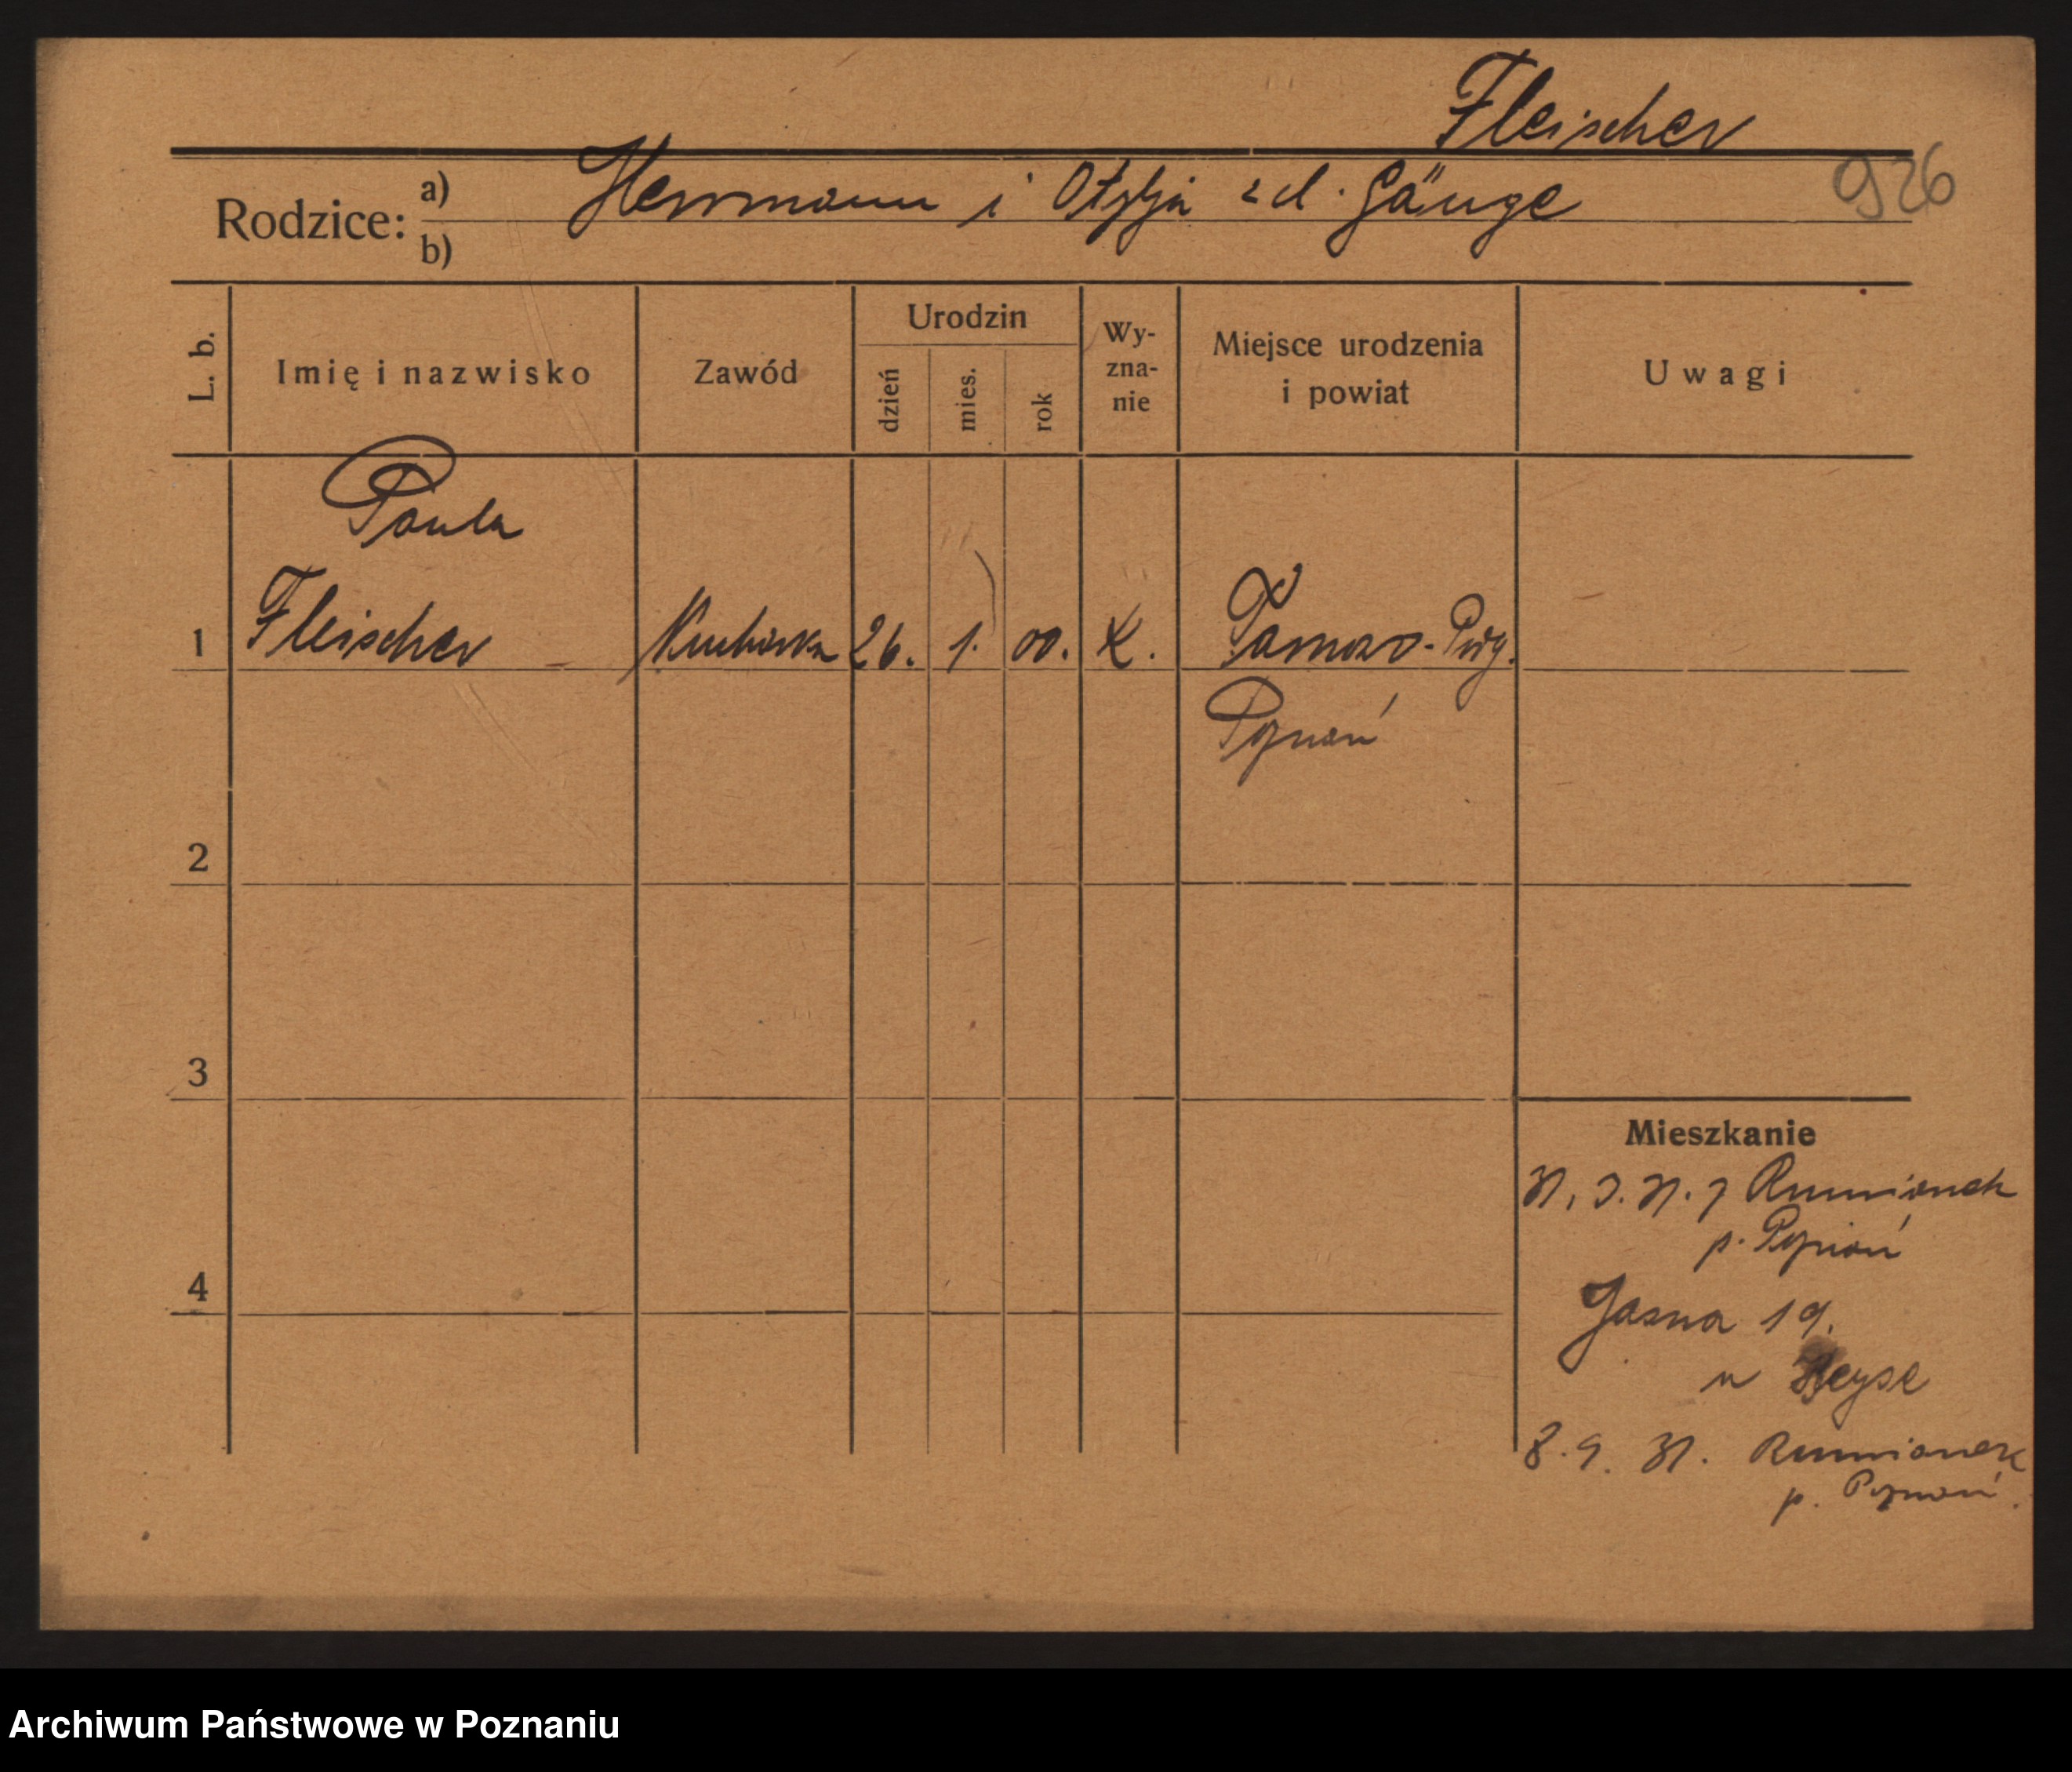 Fleischer
926
Rodzice: a) Hermann i Otylja z d. Gäuge
b)
L. b. Imię i nazwisko Zawód Urodzin dzień mies. rok Wy-zna-nie Miejsce urodzenia i powiat Uwagi
Paula
1 Fleischer Kucharka 26. 1. 00. K. Tarnowo-Pdg.
Poznań
2
3
Mieszkanie
Rumianek
p. Poznań
4
Jasna 19.
u Heyse
8.9.31. Rumianek
p. Poznań.
Archiwum Państwowe w Poznaniu